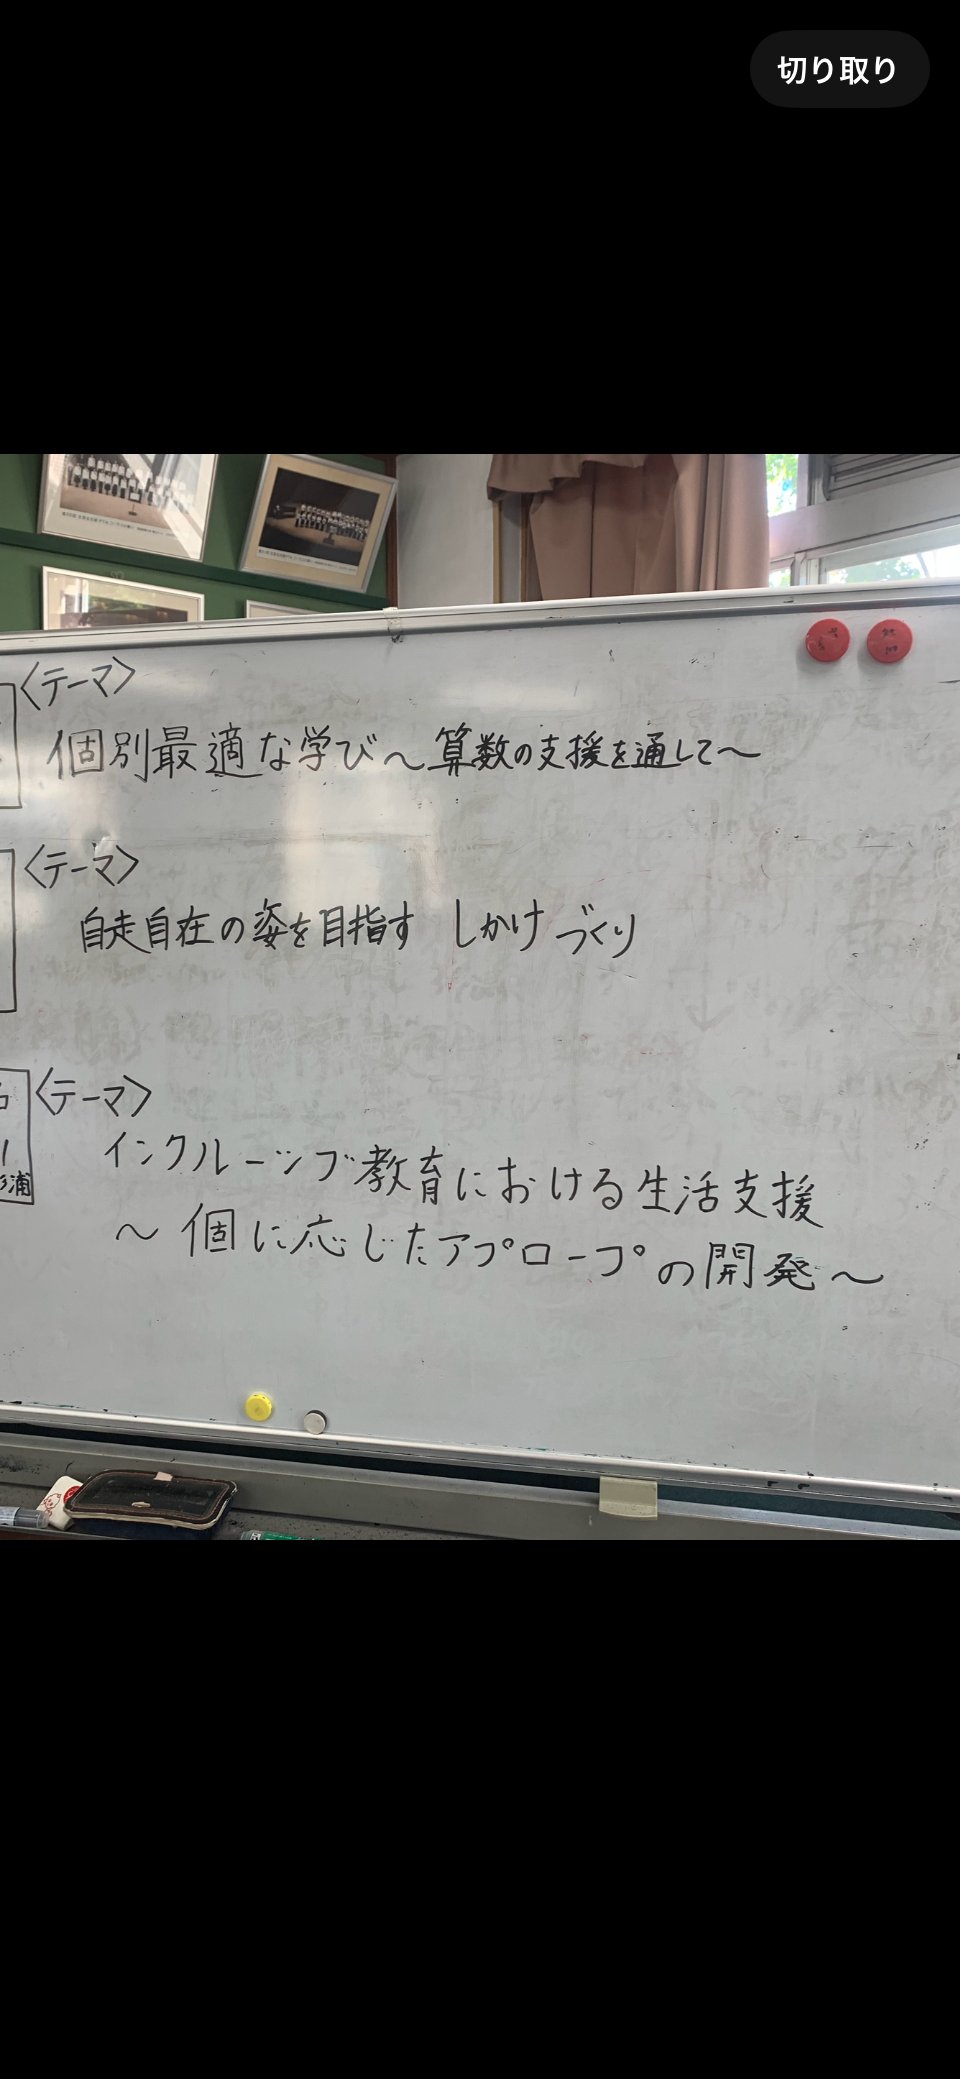 切り取り
〈テーマ〉
個別最適な学び～算数の支援を通して～
〈テーマ〉
自走自在の姿を目指す しかけづくり
〈テーマ〉
インクルーシブ教育における生活支援
～個に応じたアプローチの開発～